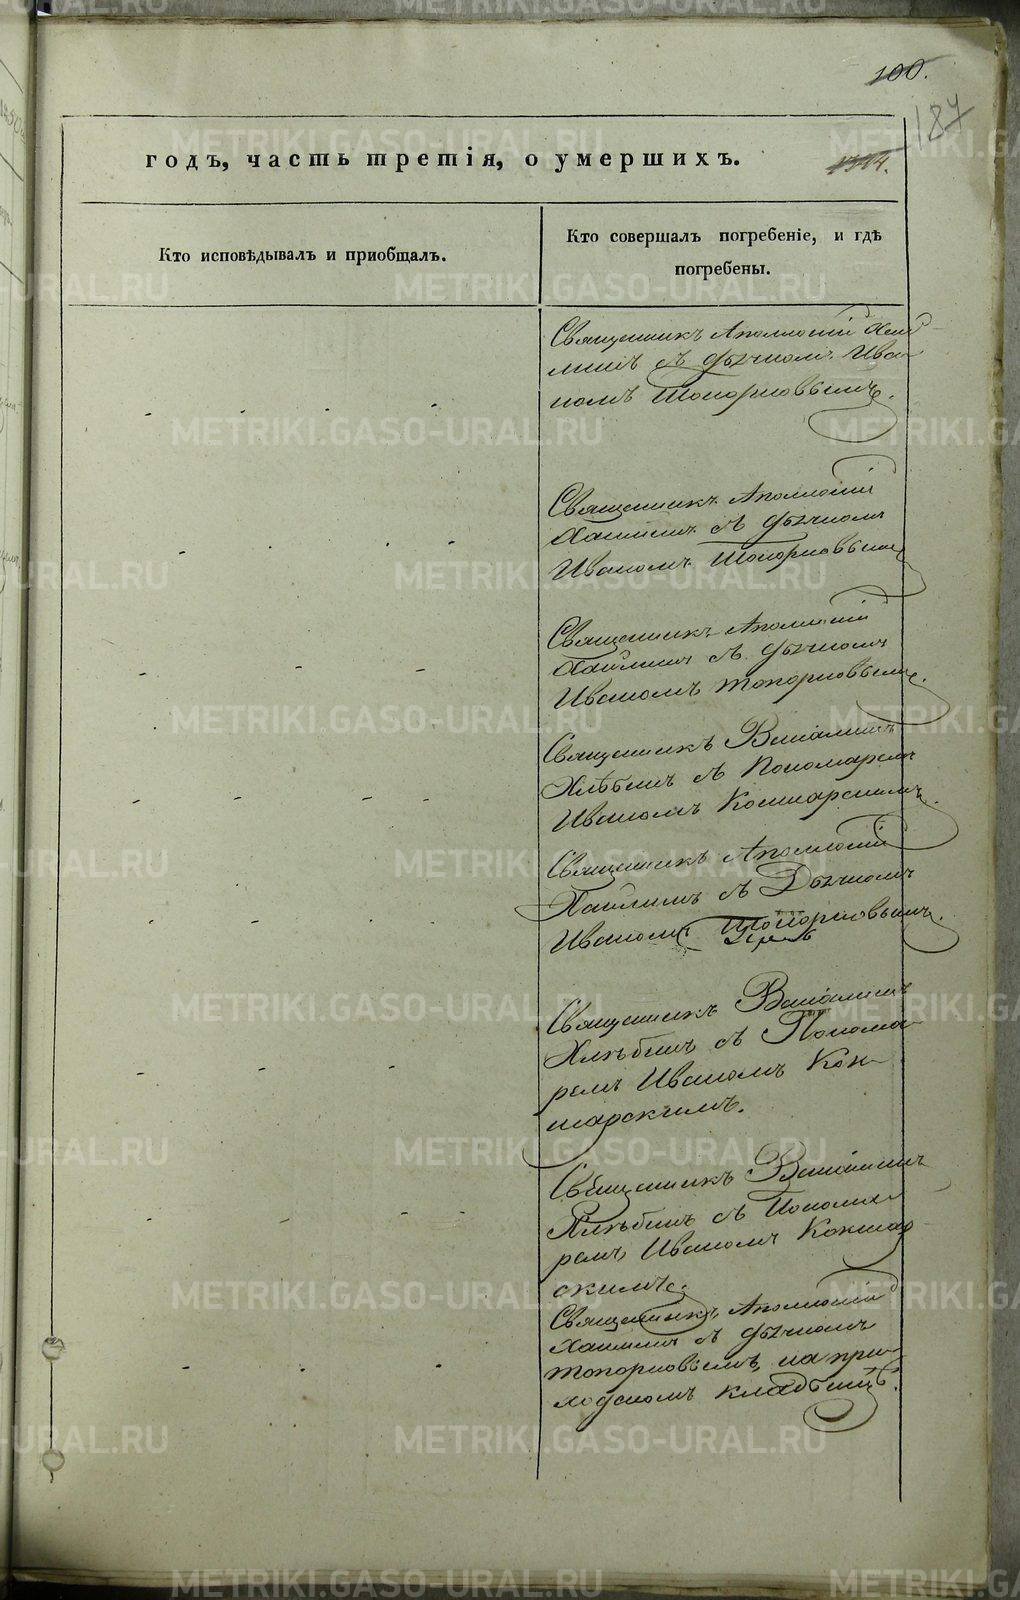 100.
187
1314.
годъ, часть третія, о умершихъ.
Кто исповѣдывалъ и пріобщалъ.
Кто совершалъ погребеніе, и гдѣ
погребены.
Священникъ Аполлоній Хай-
линъ съ дьячкомъ Ива-
номъ Топорковымъ.
Священникъ Аполлоній
Хайлинъ съ дьячкомъ
Иваномъ Топорковымъ
Священникъ Аполлоній
Хайлинъ съ дьячкомъ
Иваномъ Топорковымъ.
Священникъ Веніаминъ
Хлѣбинъ съ Пономаремъ
Иваномъ Кокшарскимъ.
Священникъ Аполлоній
Хайлинъ съ Дьячкомъ
Иваномъ Топорковымъ.
Священникъ Веніаминъ
Хлѣбинъ съ Понома-
ремъ Иваномъ Кок-
шарскимъ.
Священникъ Веніаминъ
Хлѣбинъ съ Понома-
ремъ Иваномъ Кокшар-
скимъ.
Священникъ Аполлоній
Хайлинъ съ дьячкомъ
Топорковымъ, на при-
ходскомъ кладбищѣ.
METRIKI.GASO-URAL.RU